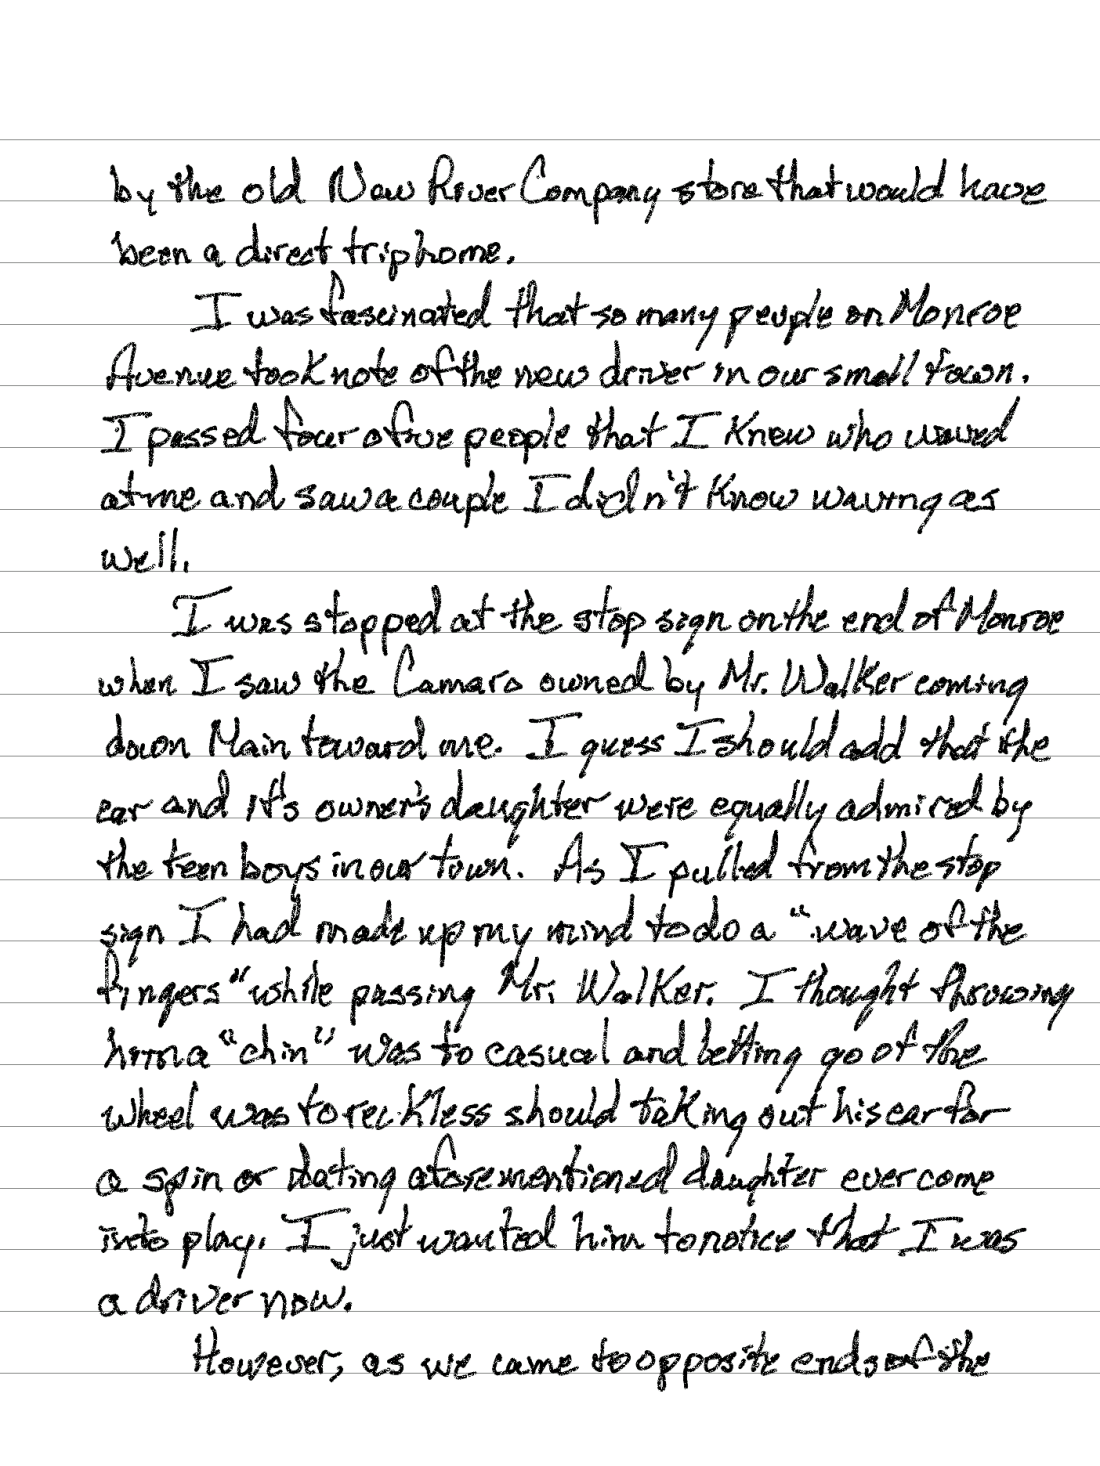 by the old New River Company store that would have
been a direct trip home.
I was fascinated that so many people on Monroe
Avenue took note of the new driver in our small town.
I passed four or five people that I knew who waved
at me and saw a couple I didn't know waving as
well.
I was stopped at the stop sign on the end of Monroe
when I saw the Camaro owned by Mr. Walker coming
down Main toward me. I guess I should add that the
car and it's owner's daughter were equally admired by
the teen boys in our town. As I pulled from the stop
sign I had made up my mind to do a "wave of the
fingers" while passing Mr. Walker. I thought throwing
him a "chin" was to casual and letting go of the
wheel was to reckless should taking out his car for
a spin or dating aforementioned daughter ever come
into play. I just wanted him to notice that I was
a driver now.
However, as we came to opposite ends of the